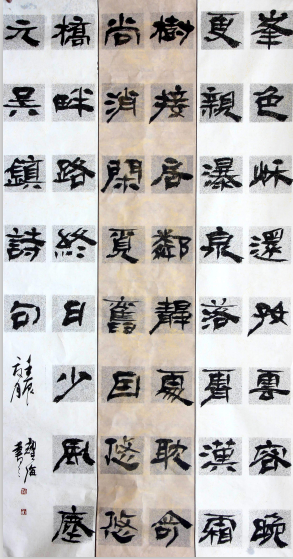 峯色秋還好雲容晚
更親瀑泉落霄漢霜
樹接居鄰靜夏耽奇
尚消閑覓舊因悠悠
橋畔路終日少風塵
元吳鎮詩句
壬辰